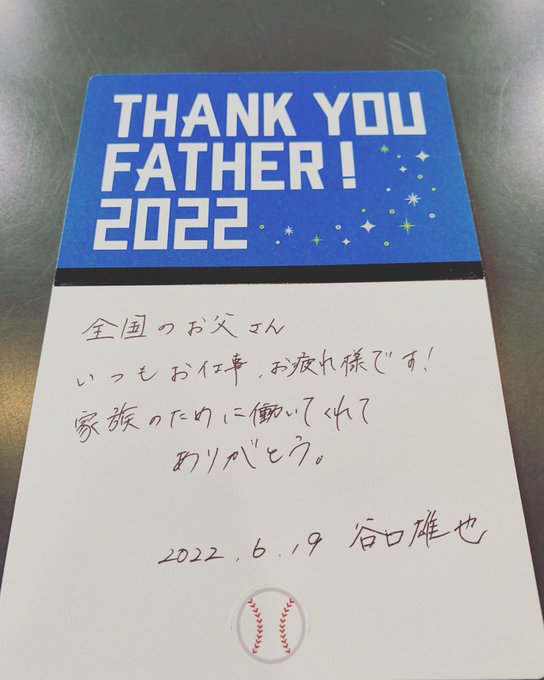 THANK YOU
FATHER!
2022
全国のお父さん
いつもお仕事、お疲れ様です!
家族のために働いてくれて
ありがとう。
2022.6.19 谷口雄也